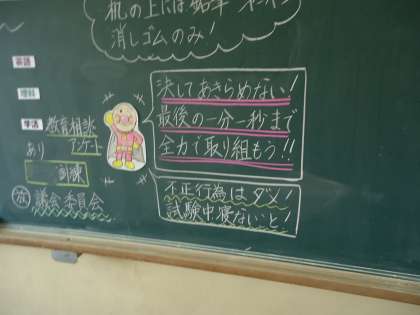 机の上には鉛筆
消しゴムのみ!
英語
理科
学活
教育相談
アンケート
あり
訓練
放
議会委員会
決してあきらめない!
最後の一分一秒まで
全力で取り組もう!!
不正行為はダメ!
試験中寝ないと!